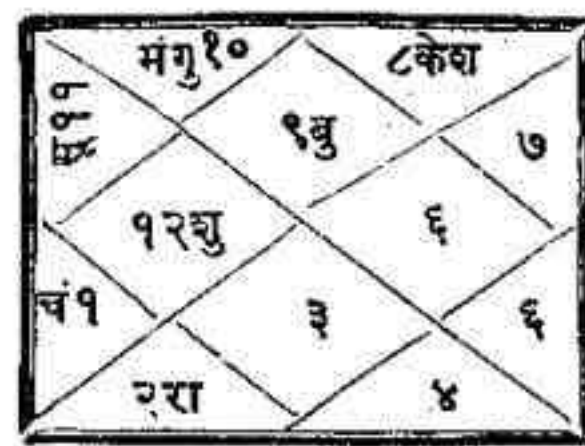 मंगु१०
८केश
११
९बु
७
१२शु
६
चं१
३
६
२रा
४